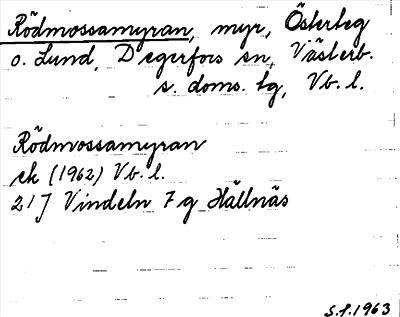 Rödmossamyran, myr, Österleg
o. Lund, Degerfors sn, Västerb.
s. doms. lg, Vb. l.
Rödmossamyran
ek (1962) Vb. l.
21J Vindeln 7g Hällnäs
S.f. 1963